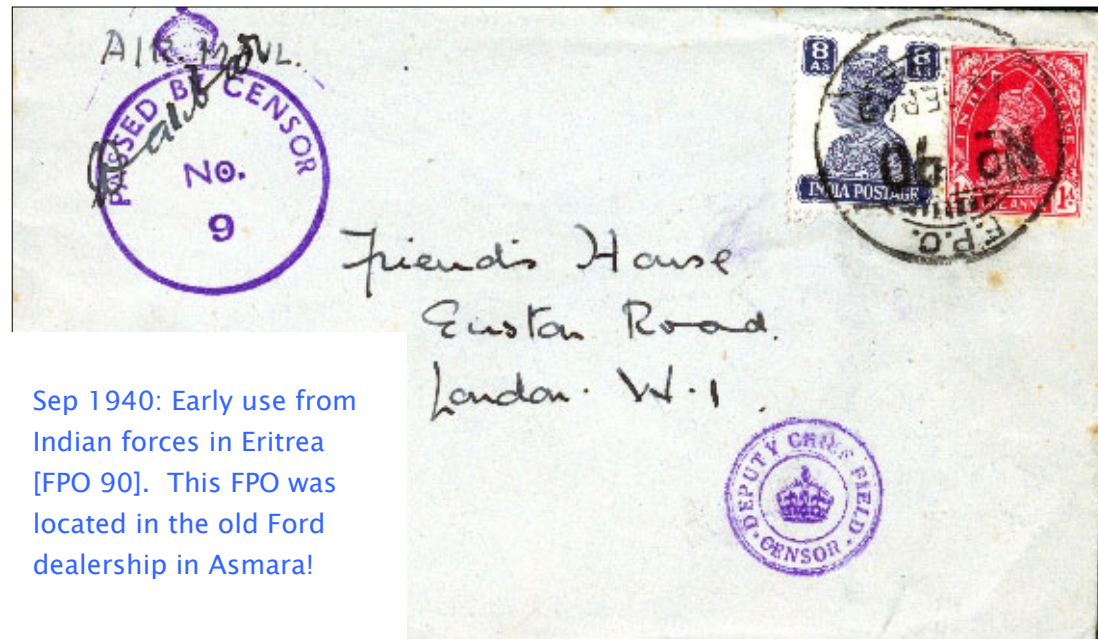 AIR MAIL.
PASSED BY CENSOR
No.
9
8 AS 8
INDIA POSTAGE
INDIA POSTAGE
ONE ANNA 1A
No 90
F.P.O.
Friends House
Euston Road.
London. W.1.
DEPUTY CHIEF FIELD
CENSOR
Sep 1940: Early use from
Indian forces in Eritrea
[FPO 90]. This FPO was
located in the old Ford
dealership in Asmara!